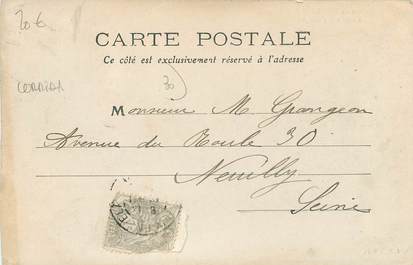 20€
CARTE POSTALE
Ce côté est exclusivement réservé à l'adresse
30
Monsieur M. Grangeon
Avenue du Roule 30
Neuilly
Seine